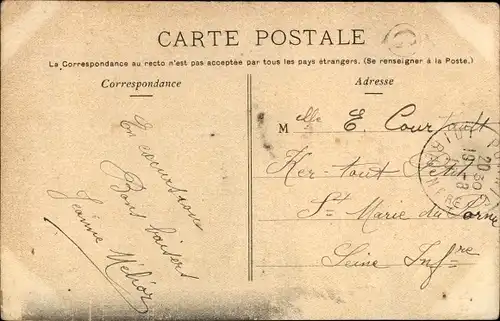 CARTE POSTALE
La Correspondance au recto n'est pas acceptée par tous les pays étrangers. (Se renseigner à la Poste.)
Correspondance
Adresse
En excursion
Bons baisers
Jeanne
Mlle E. Courtault
Ker-tout Petit
Ste Marie du
Seine Infre
20 30
19 - 8